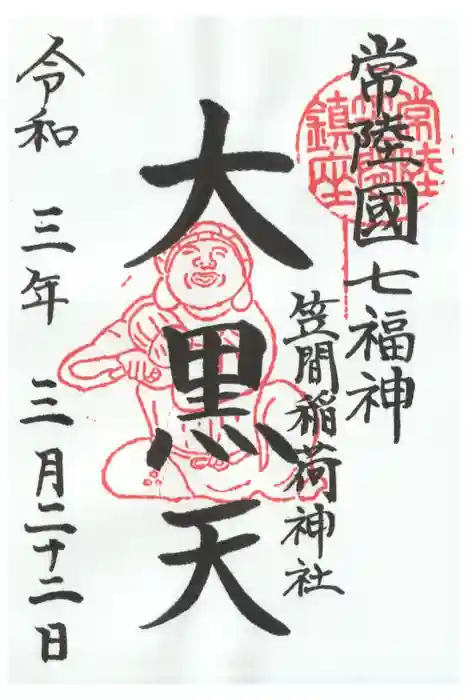 常陸國七福神
笠間稲荷神社
大黒天
令和 三年 三月二十二日